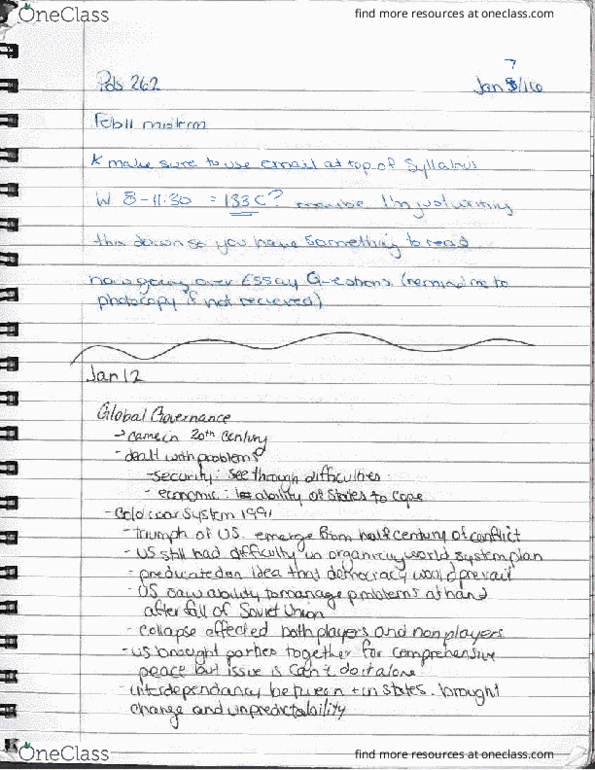 OneClass
find more resources at oneclass.com
Pols 262
7
Jan /16
Feb 11 midterm
* make sure to use email at top of Syllabus
W 8-11:30 = 133C? maybe I'm just writing
this down so you have something to read
now going over Essay Questions (remind me to
photocopy if not recieved)
Jan 12
Global Governance
→ came in 20th century
- dealt with problems
- security: see through difficulties
- economic: ability of states to cope
- Cold war system 1991
- triumph of US. emerge from half century of conflict
- US still had difficulty in organizing world system plan
- predicated on idea that democracy would prevail
- US saw ability to manage problems at hand
after fall of Soviet Union
- collapse affected both players and non players
- US brought parties together for comprehensive
peace but issue is can't do it alone
- interdependancy between + in states. brought
change and unpredictability
OneClass
find more resources at oneclass.com